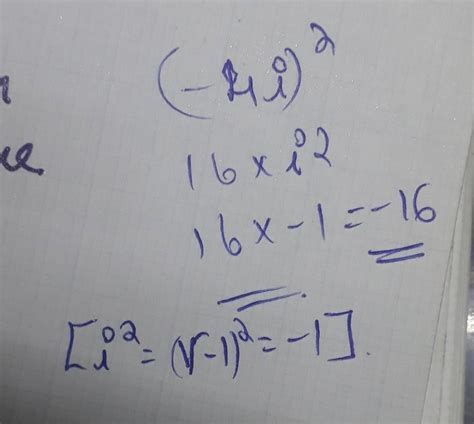 (-4i)²
16 × i²
16 × -1 = -16
[i² = (√-1)² = -1].